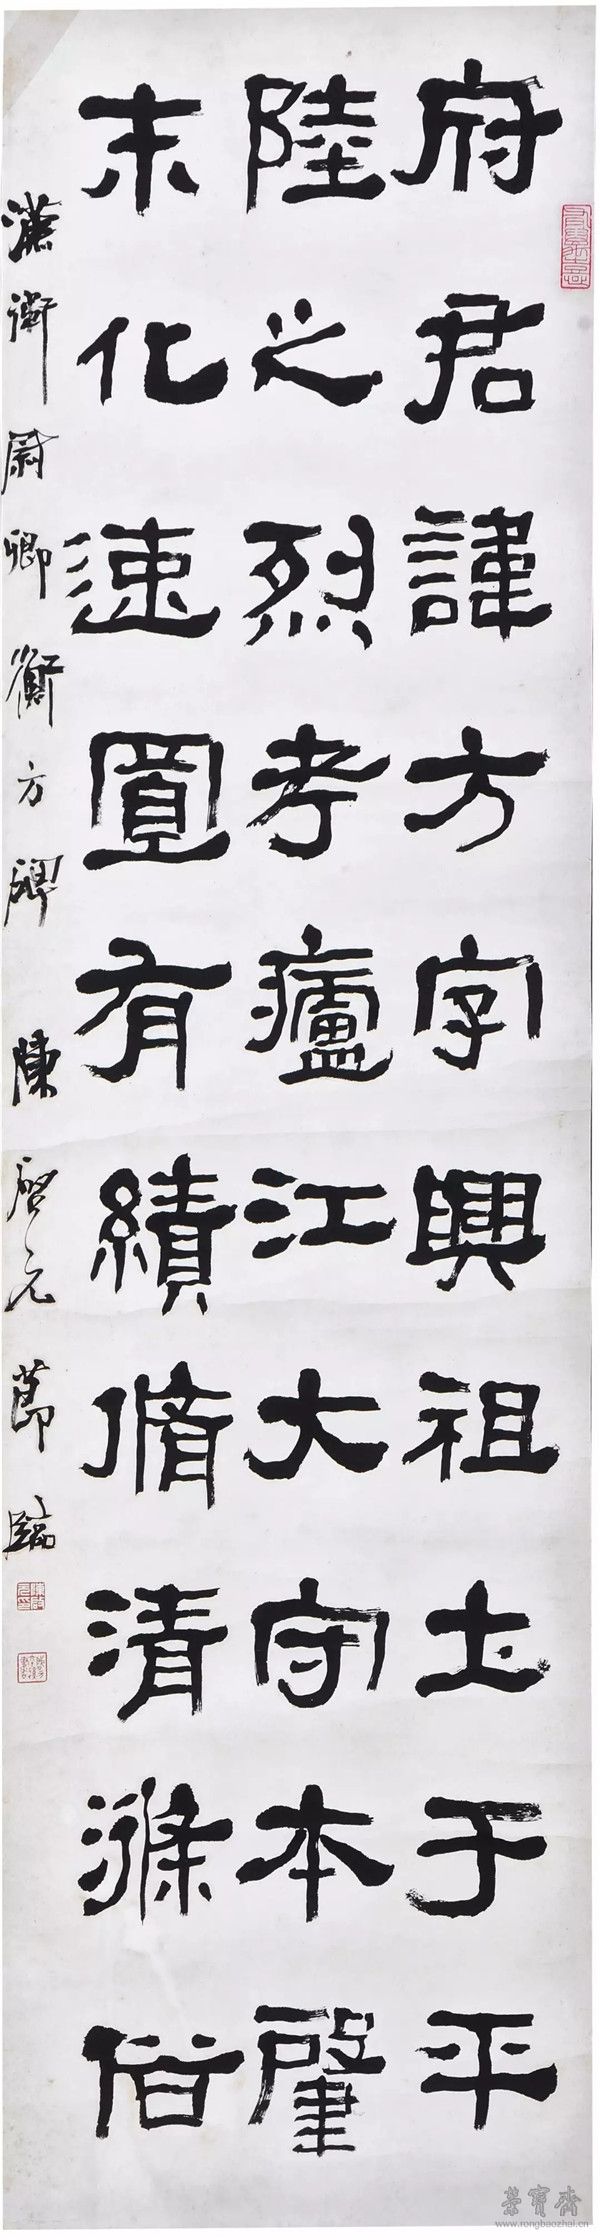 府君諱方字興祖土于平
陸之烈考廬江大守本肇
末化速置有績脩清滌俗
漢衛尉卿衡方碑 陳啓元節臨
榮寶齋
www.rongbaozhai.cn